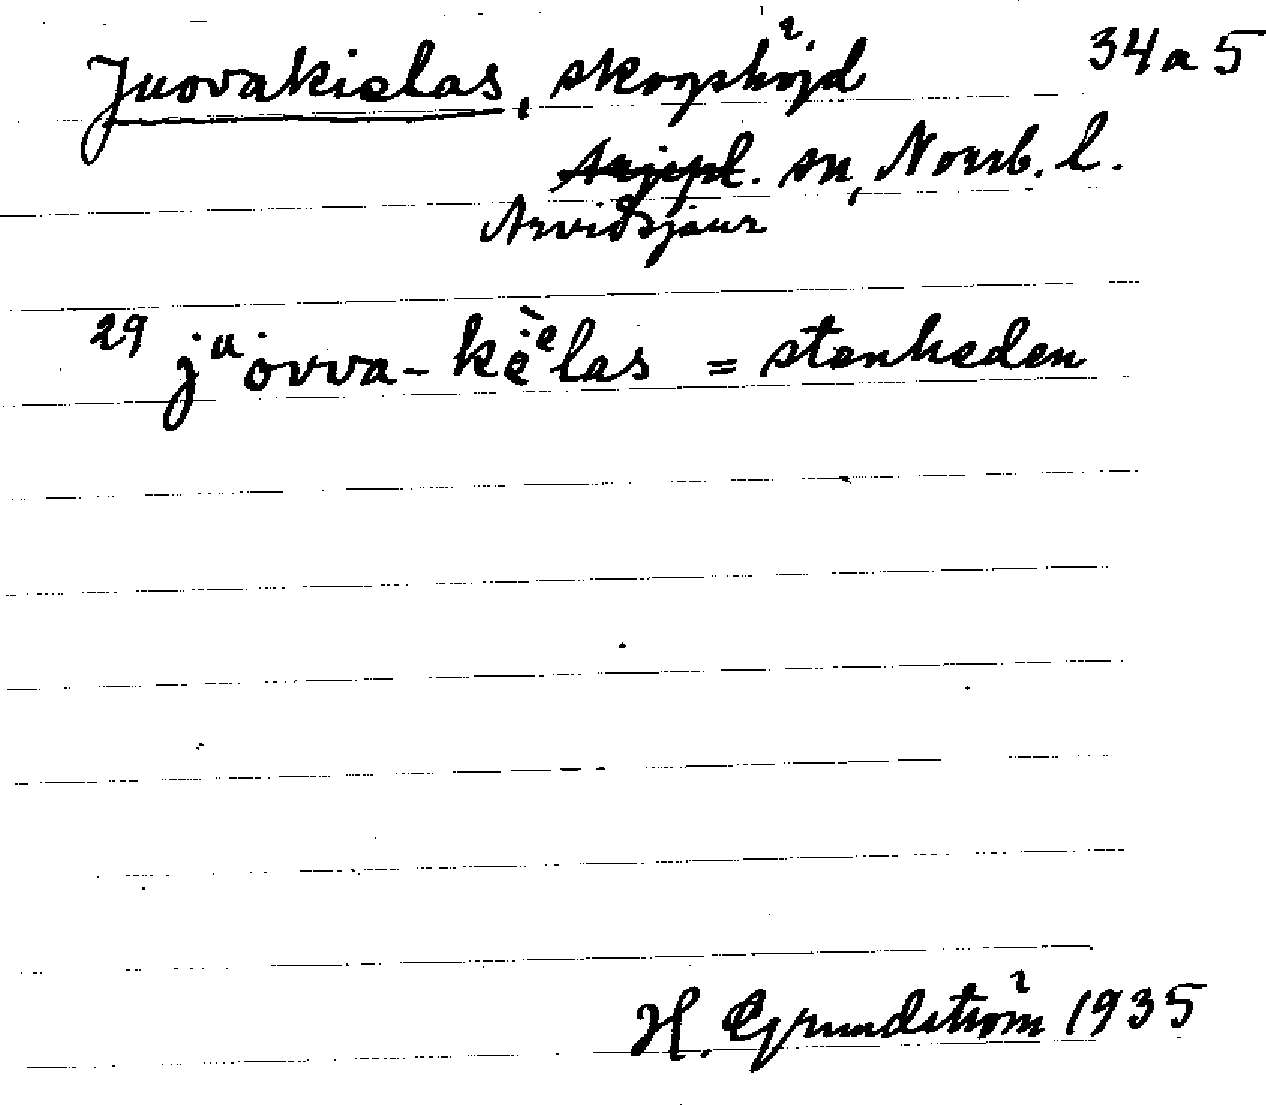 Juovakielas, skogshöjd 34a5
Arjepl. sn, Norrb. l.
Arvidsjaur
29 jᵘȯvva-kèᵉlas = stenheden
H. Grundström 1935